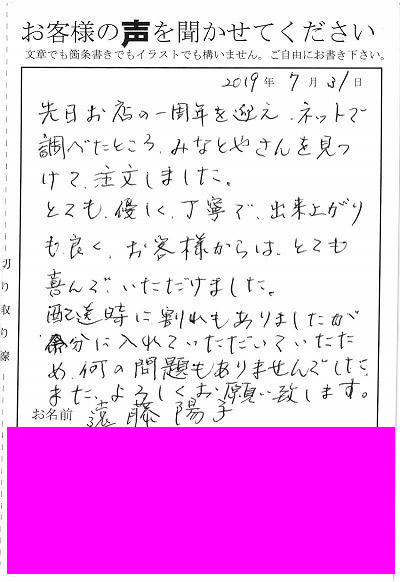 お客様の声を聞かせてください
文章でも箇条書きでもイラストでも構いません。ご自由にお書き下さい。
2019年 7月 31日
先日お店の一周年を迎え、ネットで
調べたところ、みなとやさんを見つ
けて、注文しました。
とても、優しく、丁寧で、出来上がり
も良く、お客様からは、とても
喜んで、いただけました。
配送時に割れもありましたが
余分に入れていただいていたた
め、何の問題もありませんでした。
また、よろしくお願い致します。
お名前 遠藤 陽子
切り取り線